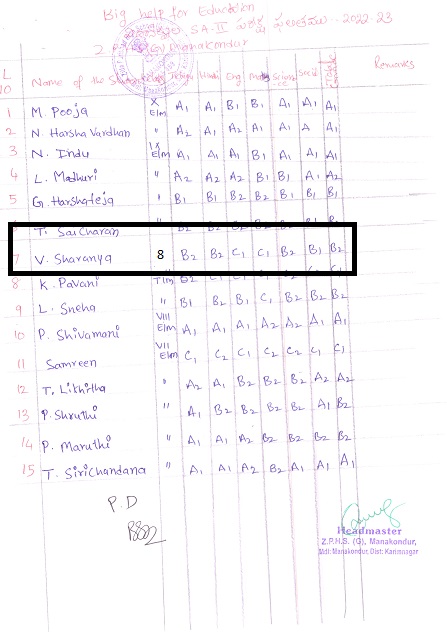 Big help for Education
SA-II 2022-23
Z.P.H.S (G) Manakondur
L NO Name of the Student Class Telugu Hindi Eng Maths Science Social Grade Remarks
1 M. Pooja X E/m A1 A1 B1 B1 A1 A1 A1
2 N. Harsha Vardhan " A2 A1 A2 A1 A1 A A1
3 N. Indu IX E/m A1 A1 A1 B1 A1 A1 A1
4 L. Madhuri " A2 A2 A2 B1 B1 A1 A2
5 G. Harshateja " B1 B1 B2 B2 B1 B1 B1
6 T. Sai Charan B2 B2 B2 B2
7 V. Sharanya 8 B2 B2 C1 C1 B2 B1 B2
8 K. Pavani T/m B2 B2 C1 B2 B2
9 L. Sneha " B1 B2 B1 C1 B2 B2 B2
10 P. Shivamani VIII E/m A1 A1 A2 A2 A1 A1
11 Samreen VII E/m C1 C2 C1 C2 C2 C1 C1
12 T. Likhitha " A2 A1 B2 B2 B2 A2 A2
13 P. Shruthi " A1 B2 B2 B2 B2 A1 B2
14 P. Maruthi " A1 A1 A2 B2 B2 B2 B2
15 T. Sirichandana " A1 A1 A2 B2 A1 A1 A1
P.D
Headmaster
Z.P.H.S. (G), Manakondur,
Mdl: Manakondur, Dist: Karimnagar